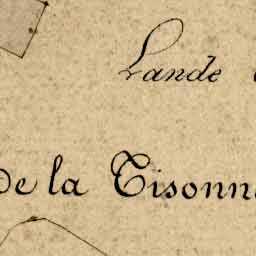 Lande
de la Tisonn